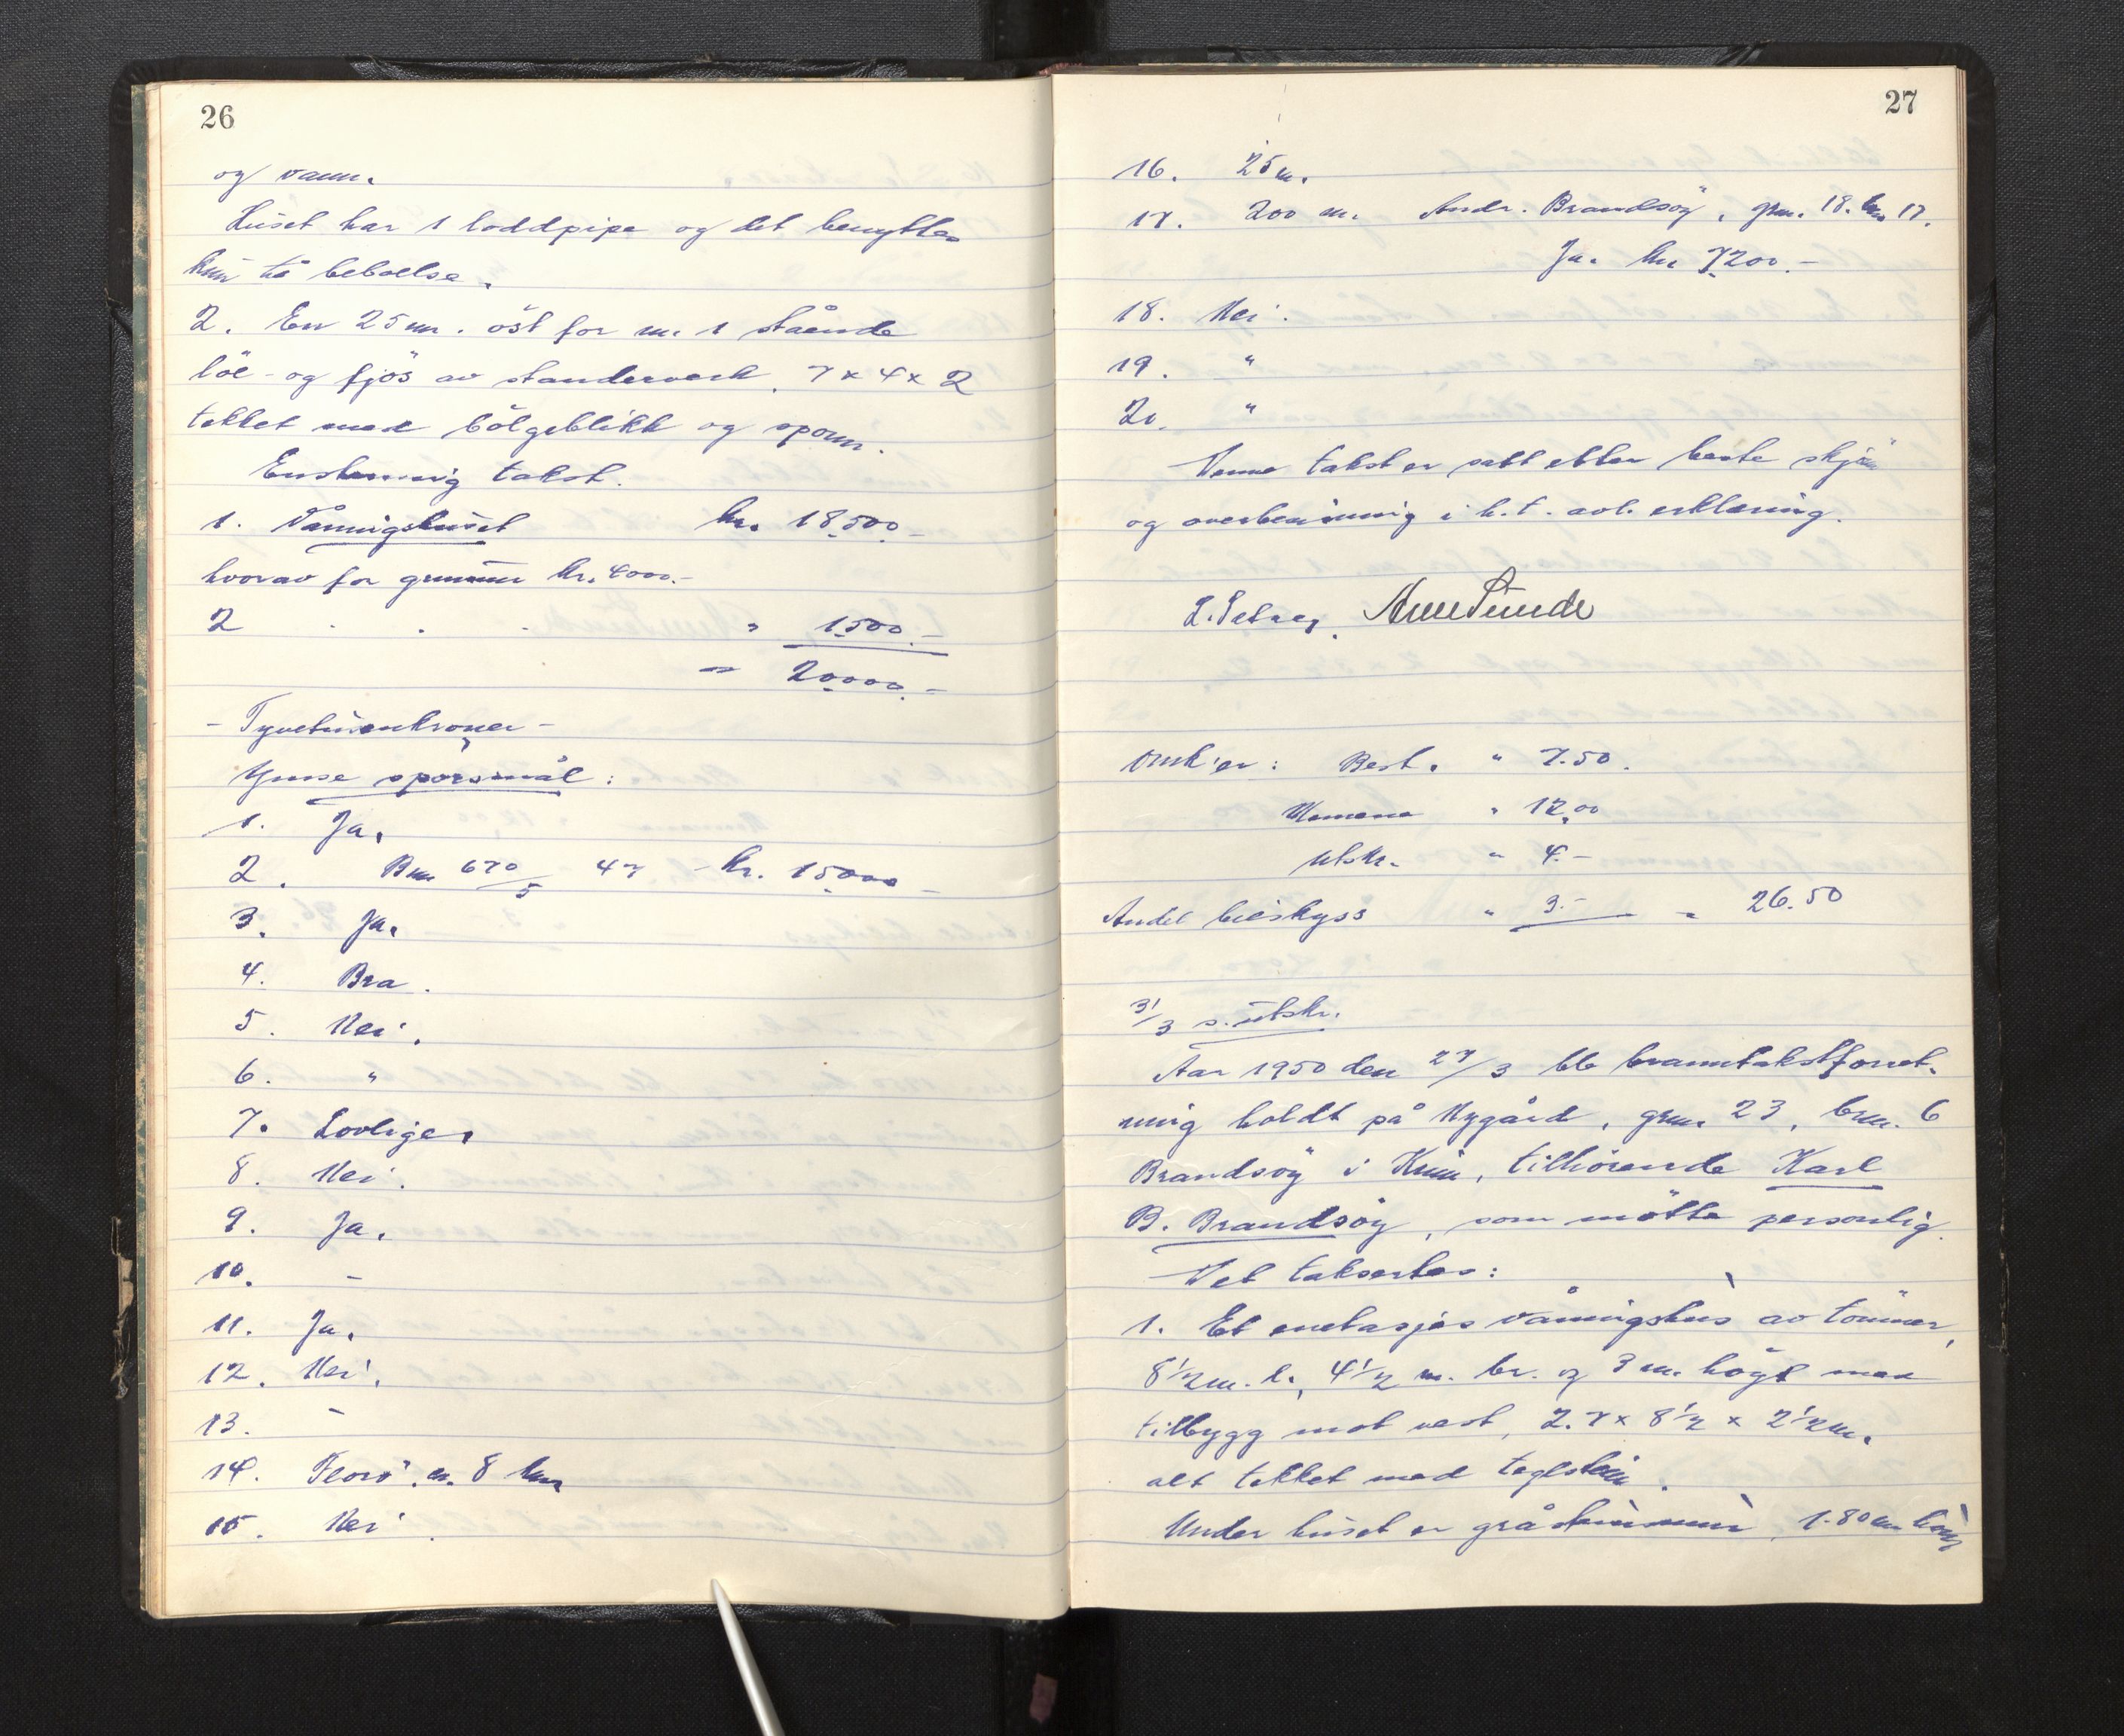 26
og vann.
Huset har 1 loddpipe og det benyttes
kun til beboelse.
2. En 25 m. öst for nr. 1 stående
löe- og fjös av standerverk. 7 x 4 x 2
tekket med bölgeblikk og sponn.
Enstemmig takst.
1. Våningshuset kr. 18.500.-
hvorav for grunnmur kr. 4000.-
2 . . . " 1500.-
= 20.000.-
- Tyvetusenkroner -
Ymse spörsmål:
1. Ja.
2. Bnr 670/5 47 - kr. 15.000 -
3. Ja.
4. Bra.
5. Nei.
6. "
7. Lovlige.
8. Nei.
9. Ja.
10. -
11. Ja.
12. Nei.
13. -
14. Florö. ca. 8 km
15. Nei.
27
16. 25 m.
17. 200 m. Andr. Brandsöy, gnr. 18. bnr 17.
Ja. kr 7200.-
18. Nei.
19. "
20. "
Denne takst er satt etter beste skjön
og overbevisning i h.t. avl. erklæring.
Arne Sunde
Omk'er: Best. " 7.50.
Menene " 12.00
Utskr. " 4.-
Andel bilskyss " 3.- = 26.50
31/3 s. utskr.
Aar 1950 den 27/3 ble branntakstforret-
ning holdt på Nygård, gnr. 23, bnr. 6
Brandsöy i Kinn, tilhörende Karl
B. Brandsöy, som mötte personlig.
Det taksertes:
1. Et enetasjes våningshus av tömmer,
8 1/2 m. l., 4 1/2 m. br. og 3 m. högt med
tilbygg mot vest, 2.7 x 8 1/2 x 2 1/2 m.
alt tekket med teglstein.
Under huset er gråsteinsmur, 1.80 m höy